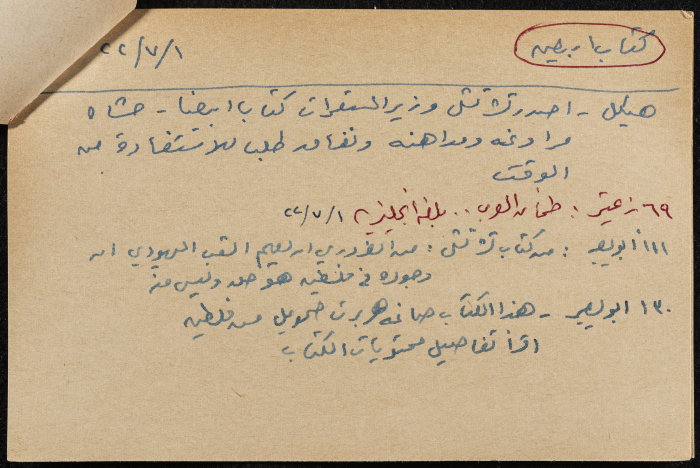 كتاب ابيض
٢٢/٧/١
هيكل - اصدر تشرتشل وزير المستعمرات كتابا ابيضا - حشاه
مراوغة ومداهنة ونفاق طلب للاستفادة من
الوقت
٦٩ زعيتر : .. بلغة انجليزية ٢٢/٧/١
١١١ أبو يصير : من كتاب تشرتشل : من الضروري ان يعلم الشعب اليهودي ان
وجوده في فلسطين هو حق وليس منة
١٣٠ ابو يصير - هذا الكتاب صاغه هربرت صموئيل من فلسطين
اقرأ تفاصيل محتويات الكتاب